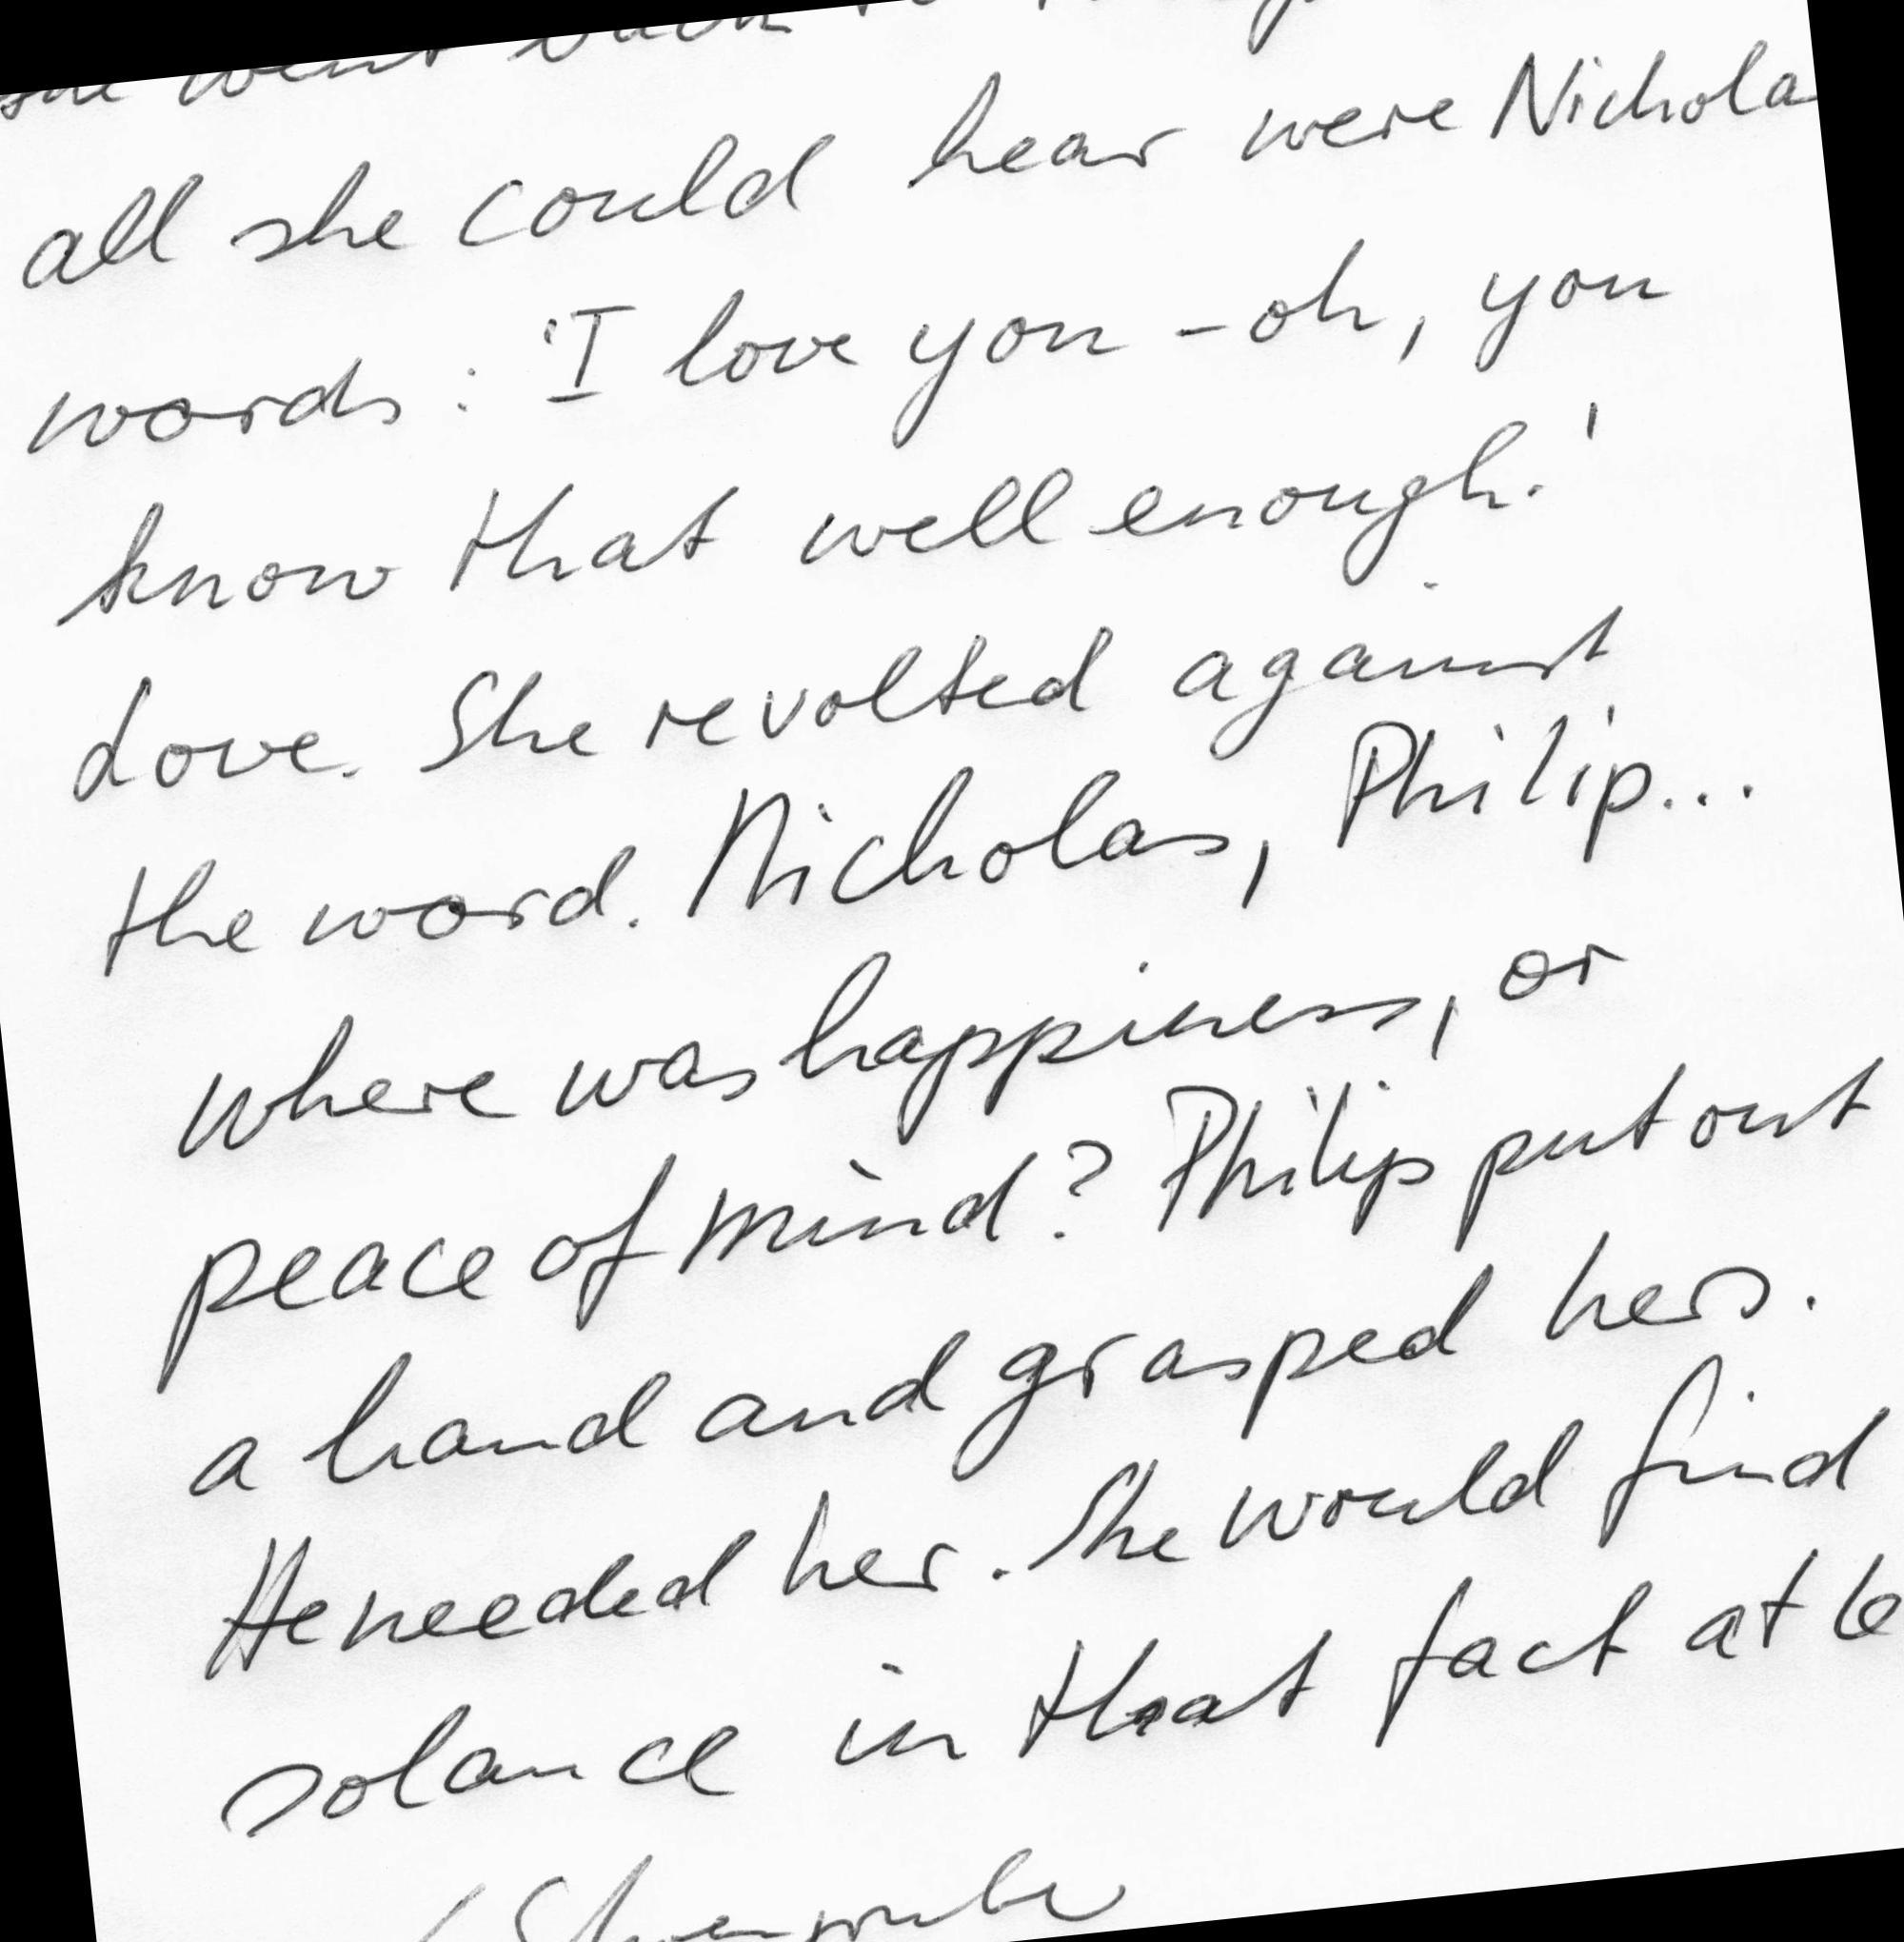 she went back to
all she could hear were Nichola
words: 'I love you - oh, you
know that well enough.'
Love. She revolted against
the word. Nicholas, Philip...
where was happiness, or
peace of mind? Philip put out
a hand and grasped hers.
He needed her. She would find
solance in that fact at le